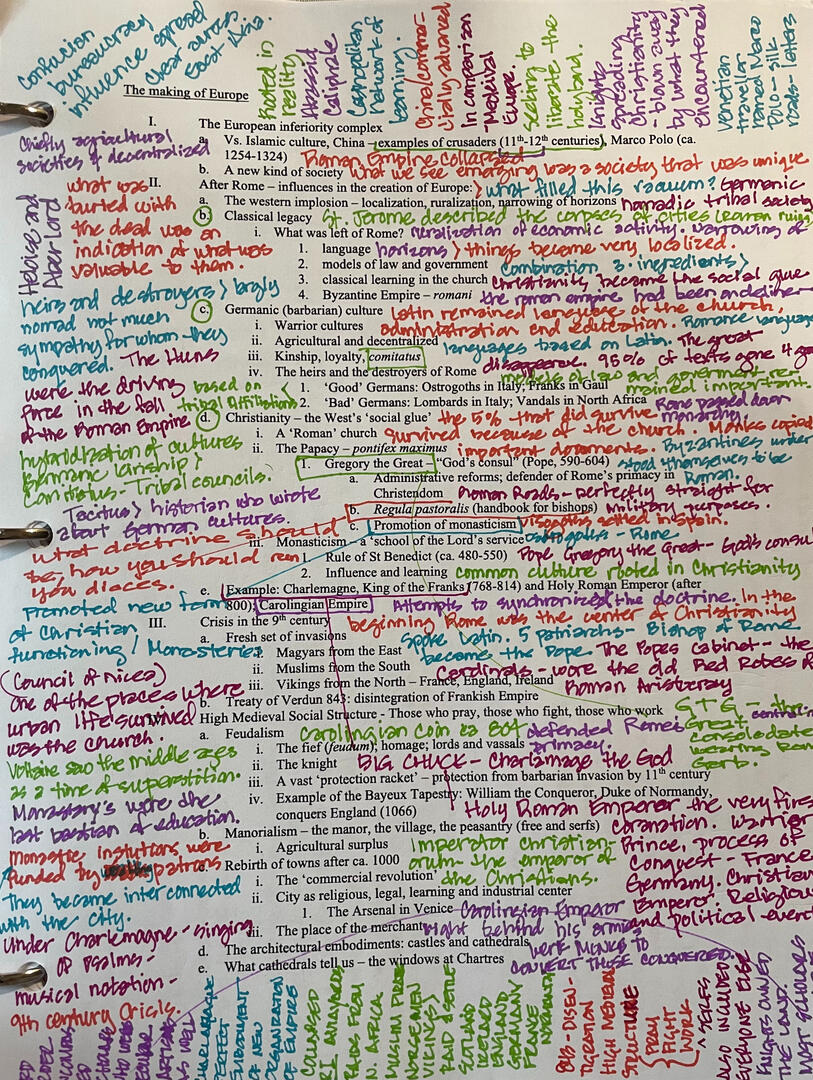 Confucian
bureaucracy
influence spread
Chest across
East Asia.
rooted in
reality
Abassid
Caliphate
Cosmopolitan
network of
learning.
China/comma-
cially advanced
in comparison
- Medeival
Europe.
seeking to
liberate the
holyland.
Knights
spreading
Christianity
- blown away
by what they
encountered
Venetian
traveller
named Marco
Polo - silk
roads - letters
The making of Europe
I. The European inferiority complex
a. Vs. Islamic culture, China – examples of crusaders (11th-12th centuries), Marco Polo (ca.
1254-1324) Roman Empire collapsed
b. A new kind of society what we see emerging was a society that was unique
II. After Rome – influences in the creation of Europe: > what filled this vacuum? Germanic
a. The western implosion – localization, ruralization, narrowing of horizons nomadic tribal society
b. Classical legacy St. Jerome described the corpses of cities
i. What was left of Rome? ruralization of economic activity. Narrowing of
1. language horizons > things become very localized.
2. models of law and government combination 3. ingredients >
3. classical learning in the church Christianity became the social glue
4. Byzantine Empire – romani the roman empire had been
c. Germanic (barbarian) culture Latin remained language of the church,
i. Warrior cultures administration and education. Romance language
ii. Agricultural and decentralized languages based on Latin. The great
iii. Kinship, loyalty, comitatus disappearance. 95% of texts gone
iv. The heirs and the destroyers of Rome models of law and government re-
1. 'Good' Germans: Ostrogoths in Italy; Franks in Gaul mained important.
2. 'Bad' Germans: Lombards in Italy; Vandals in North Africa Rome passed down
d. Christianity – the West's 'social glue' the 5% that did survive monarchy.
i. A 'Roman' church survived because of the church. Monks copied
ii. The Papacy – pontifex maximus important documents. Byzantines under
1. Gregory the Great – "God's consul" (Pope, 590-604) stood themselves to be
a. Administrative reforms; defender of Rome's primacy in Roman.
Christendom Roman Roads - perfectly straight for
b. Regula pastoralis (handbook for bishops) military purposes.
c. Promotion of monasticism Visogoths settled in Spain.
iii. Monasticism – a 'school of the Lord's service Ostrogoths - Rome
1. Rule of St Benedict (ca. 480-550) Pope Gregory the great - God's consul
2. Influence and learning common culture rooted in Christianity
e. Example: Charlemagne, King of the Franks (768-814) and Holy Roman Emperor (after
800); Carolingian Empire Attempts to synchronized the doctrine. In the
III. Crisis in the 9th century beginning Rome was the center of Christianity
a. Fresh set of invasions Spoke Latin. 5 patriarchs - Bishop of Rome
i. Magyars from the East became the Pope. The Popes cabinet - the
ii. Muslims from the South Cardinals - wore the old Red Robes of
iii. Vikings from the North – France, England, Ireland Roman Aristocracy
b. Treaty of Verdun 843: disintegration of Frankish Empire
High Medieval Social Structure - Those who pray, those who fight, those who work GTG - the
a. Feudalism Carolingian coin ca 804 defended Romes Great
i. The fief (feudum); homage; lords and vassals primacy. consolodate
ii. The knight BIG CHUCK - Charlamage the God wearing Roman
iii. A vast 'protection racket' – protection from barbarian invasion by 11th century Garb.
iv. Example of the Bayeux Tapestry: William the Conqueror, Duke of Normandy,
conquers England (1066) Holy Roman Emperor the very first
b. Manorialism – the manor, the village, the peasantry (free and serfs) coronation. Warrior
i. Agricultural surplus Imperator christian- Prince, process of
c. Rebirth of towns after ca. 1000 orum - the emperor of Conquest - France
i. The 'commercial revolution' the Christians. Germany. Christian
ii. City as religious, legal, learning and industrial center Emperor. Religious
1. The Arsenal in Venice Carolingian Emperor and political event
iii. The place of the merchant right behind his armies
d. The architectural embodiments: castles and cathedrals were monks to
e. What cathedrals tell us – the windows at Chartres convert those conquered.
Chiefly agricultural
societies & decentralized
Heloise and
Aber-Lord
what was
buried with
the dead was an
indication of what was
valuable to them.
heirs and destroyers > largly
nomad not much
sympathy for whom they
conquered. The Huns
were the driving
force in the fall
of the Roman Empire
based on
tribal affiliations
hybridization of cultures
Germanic kinship >
Comitatus - Tribal councils.
Tacitus > historian who wrote
about German cultures.
what doctrine should
be, how you should run
you diaces.
Promoted new form
of Christian
functioning / Monasteries
(Council of Nicea)
one of the places where
urban life survived
was the church.
Voltaire sao the middle ages
as a time of superstition.
Monastary's were the
last bastion of education.
monastic instutions were
funded by patrons
They became inter connected
with the city.
Under Charlemagne - singing
of psalms -
musical notation -
9th century crisis.
AS WELL
CHARLAMAGNE
PERFECT
EMBODIMENT
OF NEW
ORGANIZATION
OF EMPIRE
COLLAPSED
RAIDS FROM
N. AFRICA
MUSLIM PIRATE
NORSEMEN
VIKINGS >
RAID & SETTLE
SCOTLAND
IRELAND
ENGLAND
GERMANY/
FRANCE
DISEN-
TIGERATION
HIGH MEDIEVAL
STRUCTURE
PRAY
FIGHT
WORK
^ SERFS
ALSO INCLUDED
EVERYONE ELSE
KNIGHTS OWNED
THE LAND.
MOST SCHOLARS